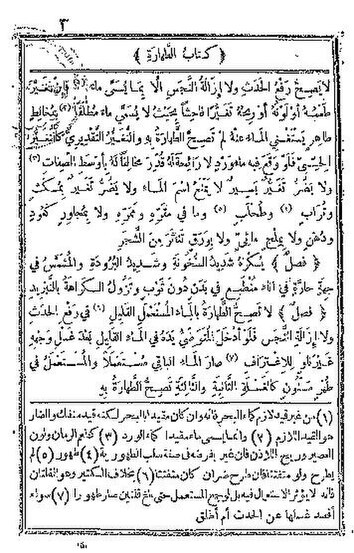 ٣
﴿ كتاب الطهارة ﴾
لا يصح رفع الحدث ولا إزالة النجس إلا بما يسمى ماء فإن تغير
طعمه أو لونه أو ريحه تغيرا فاحشا بحيث لا يسمى ماء مطلقا (٢) بمخالط
طاهر يستغنى الماء عنه لم تصح الطهارة به والتغير التقديري كالتغير
الحسي فلو وقع فيه ماء ورد لا رائحة له قدر مخالفا له بأوسط الصفات (٣)
ولا يضر تغير يسير لا يمنع اسم الماء ولا يضر تغير بمكث
وتراب (٤) وطحلب (٥) وما في مقره وممره ولا بمجاور كعود
ودهن ولا بملح مائي ولا بورق تناثر من الشجر
﴿ فصل ﴾ يكره شديد السخونة وشديد البرودة والمشمس في
جهة حارة في إناء منطبع في بدن دون ثوب وتزول الكراهة بالتبريد
﴿ فصل ﴾ لا تصح الطهارة بالماء المستعمل القليل (٦) في رفع الحدث
ولا إزالة النجس فلو أدخل المتوضئ يده في الماء القليل بعد غسل وجهه
غير ناو للاغتراف (٧) صار الماء الباقي مستعملا والمستعمل في
طهر مسنون كالغسلة الثانية والثالثة تصح الطهارة به
(١) من غير قيد لازم كماء البحر فإنه وإن كان مقيدا بالبحر لكنه قيد منفك والضار
هو القيد اللازم (٢) وإنما يسمى ماء مقيدا كماء الورد (٣) كطعم الرمان ولون
العصير وريح اللاذن فإن غير بفرضه في صفة سلب الطهورية (٤) طهور (٥) لم
يطرح ولو متفتتا فإن طرح ضر إن كان متفتتا (٦) بخلاف الكثير وهو القلتان
فإنه لا يؤثر الاستعمال فيه بل لو جمع المستعمل حتى بلغ قلتين صار طهورا (٧) سواء
أقصد غسلها عن الحدث أم أطلق